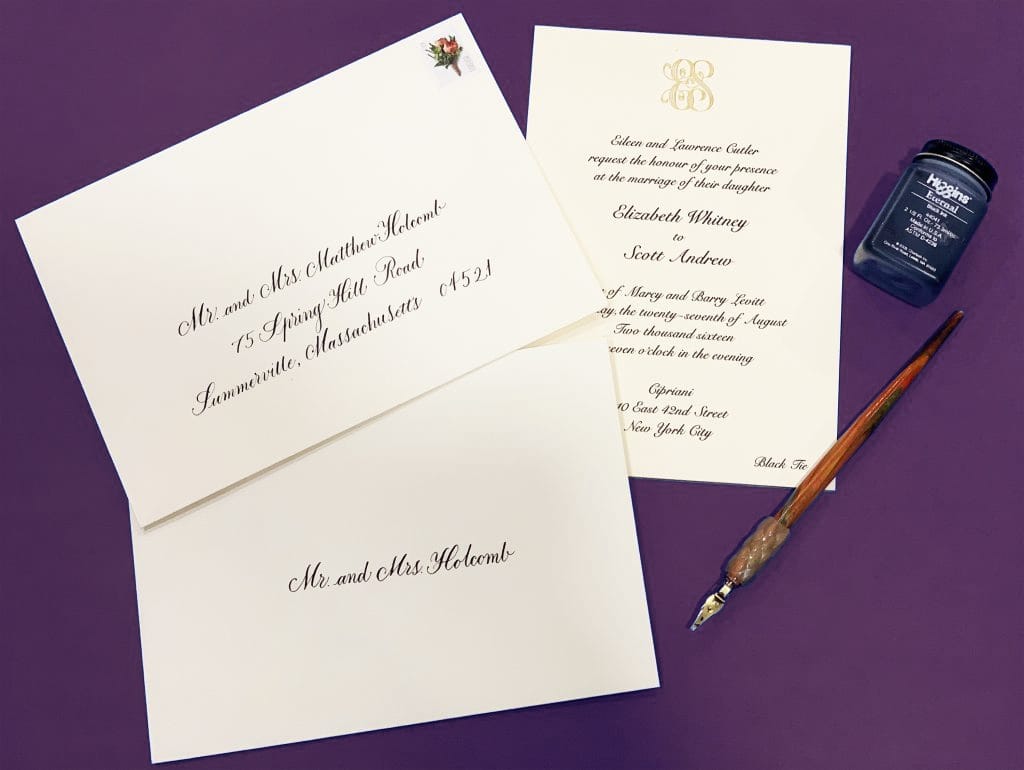 Mr. and Mrs. Matthew Holcomb
75 Spring Hill Road
Summerville, Massachusetts 01521
Mr. and Mrs. Holcomb
Eileen and Lawrence Cutler
request the honour of your presence
at the marriage of their daughter
Elizabeth Whitney
to
Scott Andrew
of Marcy and Barry Levitt
the twenty-seventh of August
Two thousand sixteen
o'clock in the evening
Cipriani
East 42nd Street
New York City
Black Tie
Higgins
Eternal
Black Ink
44041
Made in U.S.A.
Conforms to
ASTM D-4236